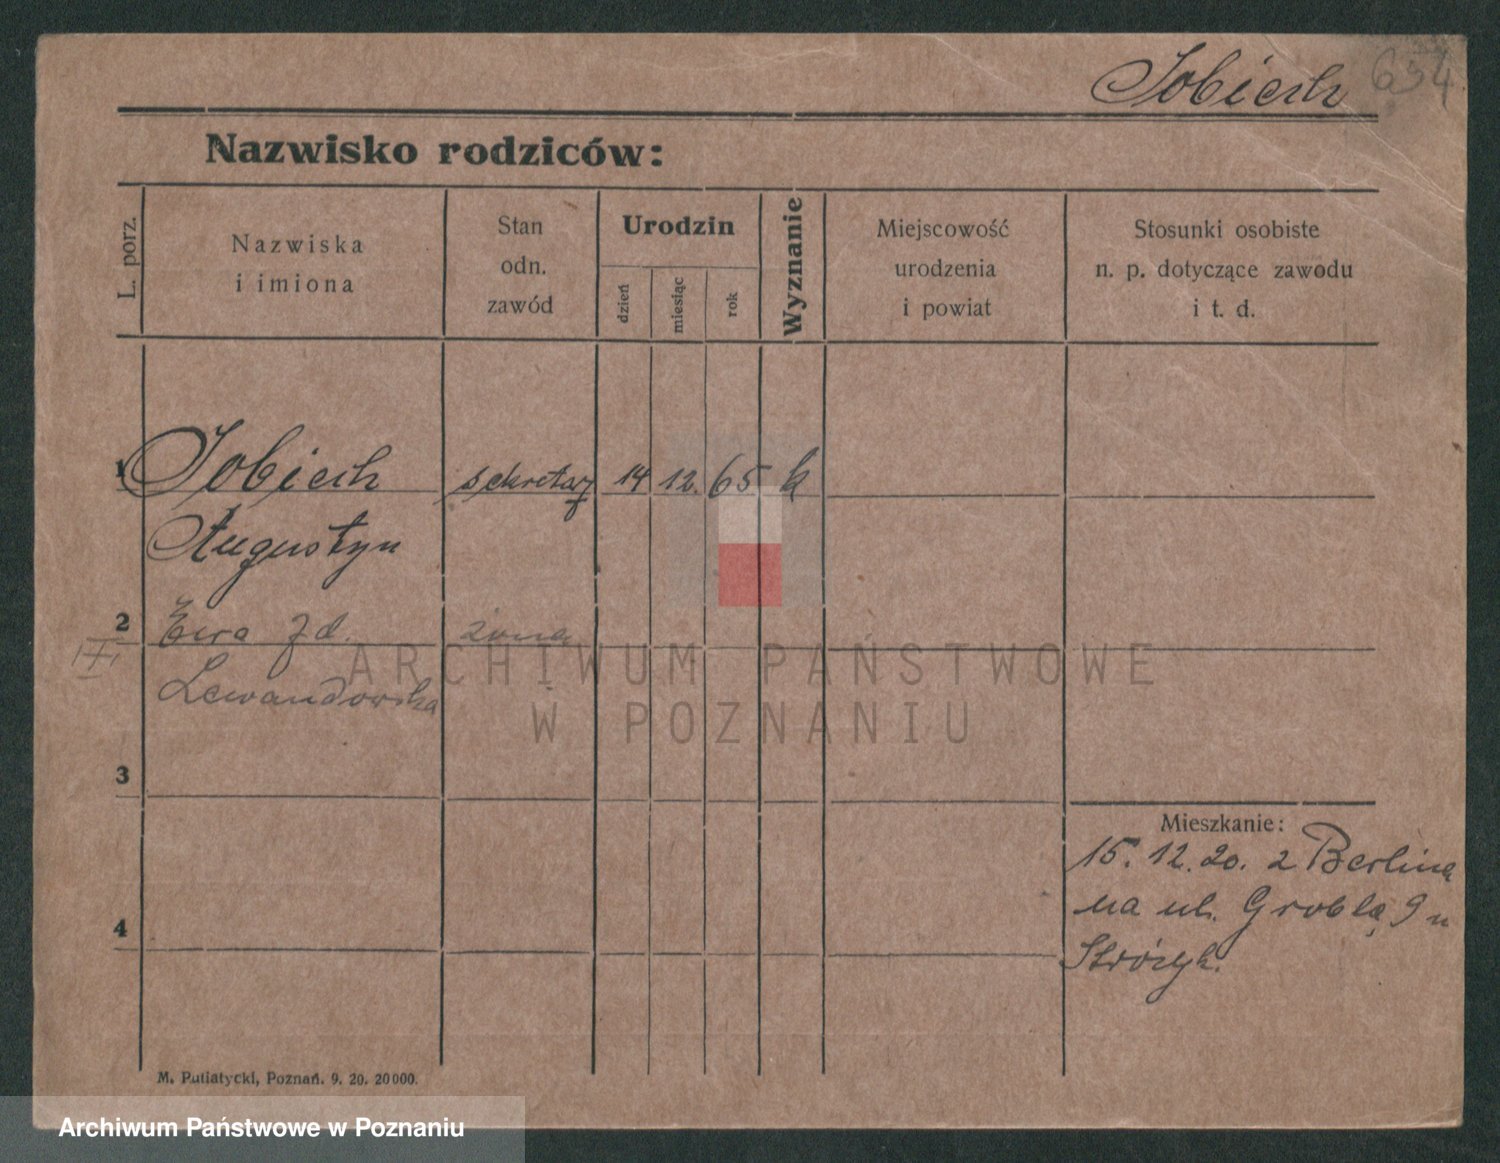 Sobiech 634
Nazwisko rodziców:
L. porz.
Nazwiska
i imiona
Stan
odn.
zawód
Urodzin
dzień
miesiąc
rok
Wyznanie
Miejscowość
urodzenia
i powiat
Stosunki osobiste
n. p. dotyczące zawodu
i t. d.
1 Sobiech sekretarz 14 12. 65 k
Augustyn
2 Ewa zd. żona
Lewandowska
3
4
Mieszkanie:
15. 12. 20. z Berlina
na ul. Groblą 9 u
Stróżyk.
M. Putiatycki, Poznań. 9. 20. 20000.
ARCHIWUM PAŃSTWOWE
W POZNANIU
Archiwum Państwowe w Poznaniu